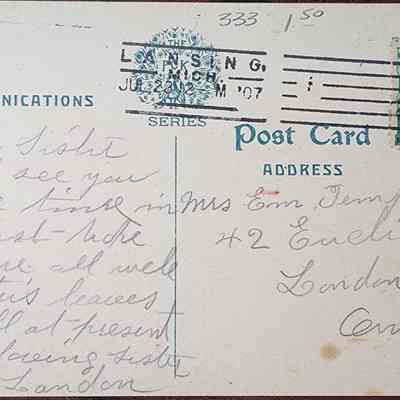 333 1.50
LANSING,
MICH.
JUL 23 12 M '07
THE
SERIES
NICATIONS
Post Card
ADDRESS
Sister
see you
time in
hope
all well
leaves
at present
loving sister
Landon
Mrs Em. Temp
42 Eucli
London
On